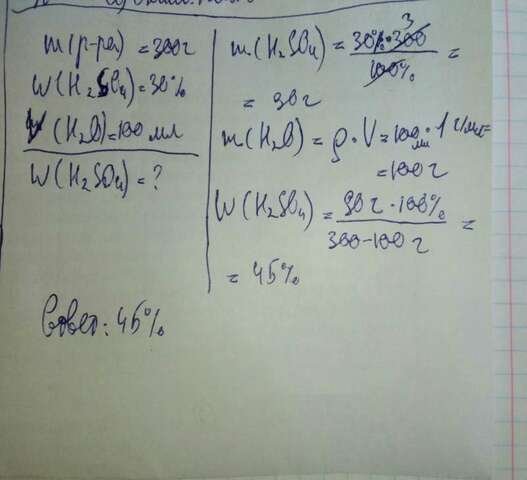 m(р-ра) = 300г
W(H₂SO₄) = 30%
V(H₂O) = 100 мл
W(H₂SO₄) = ?
m(H₂SO₄) = 30% · 300 / 100% =
3
= 90г
m(H₂O) = ρ · V = 100мл · 1 г/мл =
= 100г
W(H₂SO₄) = 90г · 100% / 300-100г =
= 45%
Ответ: 45%